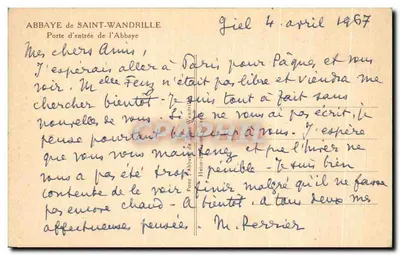 ABBAYE de SAINT-WANDRILLE
Porte d'entrée de l'Abbaye
Giel 4 avril 1967
Mes chers Amis,
J'espérais aller à Paris pour Pâques, et vous
voir. Melle n'était pas libre et viendra me
chercher bientôt - Je suis tout à fait sans
nouvelles de vous. Si je ne vous ai pas écrit, je
pense pourtant beaucoup à vous. J'espère
que vous vous maintenez et que l'hiver ne
vous a pas été trop pénible - Je suis bien
contente de le voir finir malgré qu'il ne fasse
pas encore chaud - A bientôt. à tous deux mes
affectueuses pensées. M. Perrier